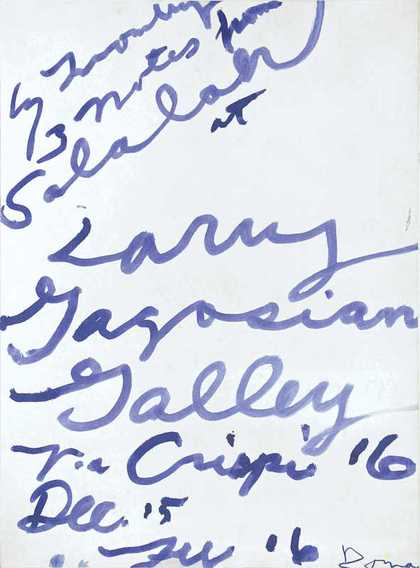 Cy Twombly
3 Notes from
Salalah
at
Larry
Gagosian
Galley
Via Crispi '16
Dec. 15
16
Roma